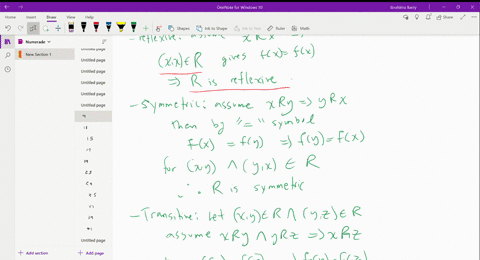 OneNote for Windows 10
File Home Insert Draw View Help
Shapes Ink to Shape Ink to Text Ruler Math
Numerade
New Section 1
Untitled page
Untitled page
Untitled page
Untitled page
Untitled page
Untitled page
Untitled page
+ Add section
+ Add page
- reflexive: assume x R x
(x,x) ∈ R gives f(x) = f(x)
⇒ R is reflexive
- Symmetric: assume x R y ⇒ y R x
then by "=" symbol
f(x) = f(y) ⇒ f(y) = f(x)
for (x,y) ∧ (y,x) ∈ R
∴ R is symmetric
- Transitive: Let (x,y) ∈ R ∧ (y,z) ∈ R
assume x R y ∧ y R z ⇒ x R z